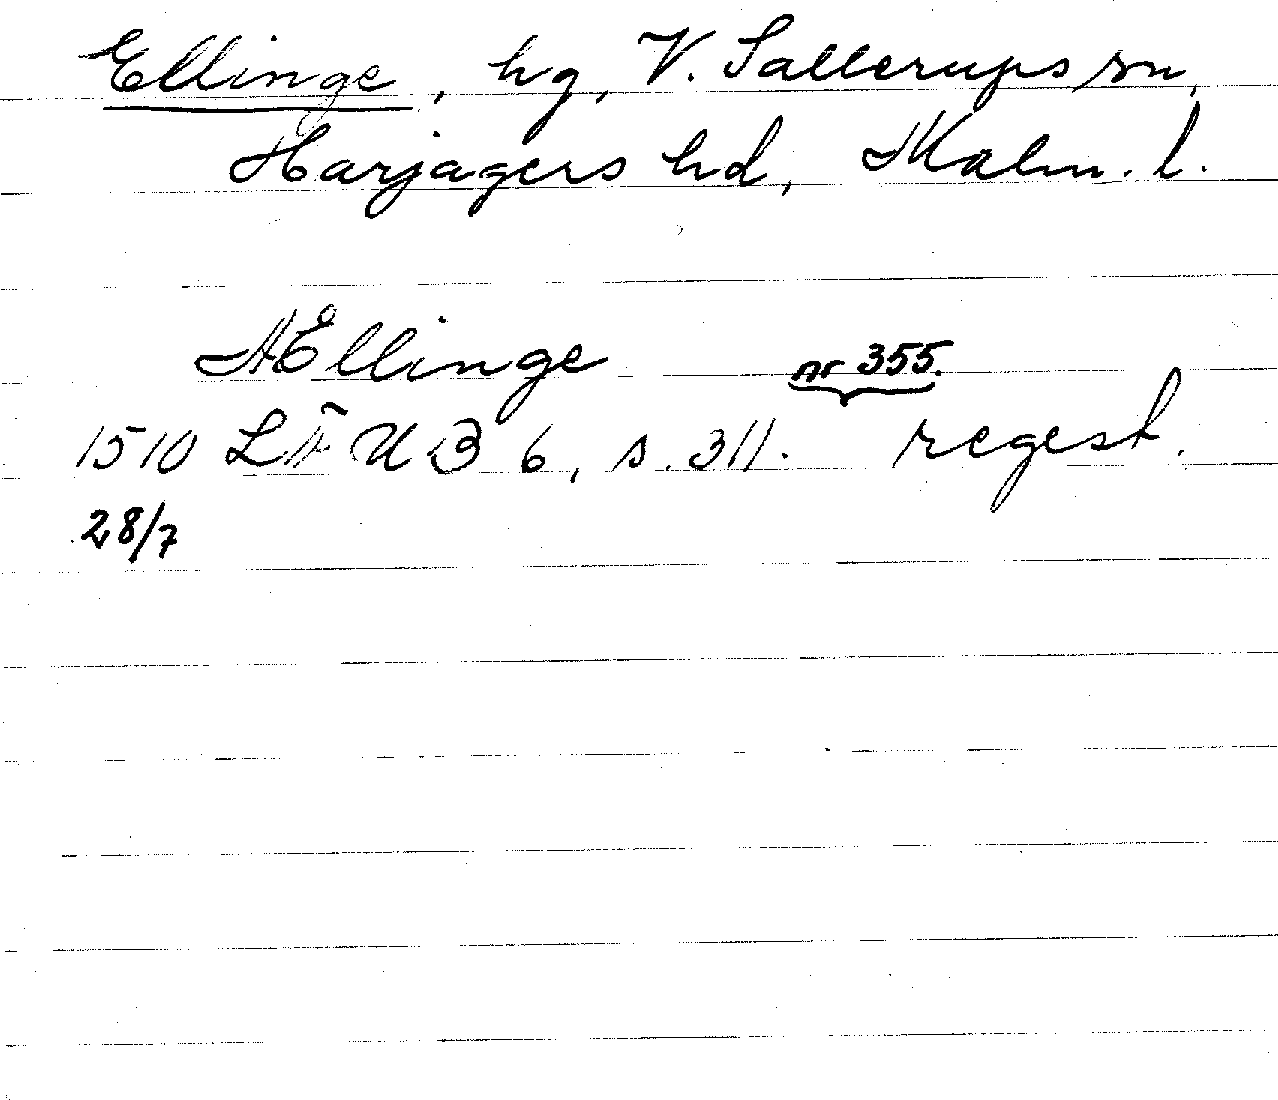 Ellinge, hg, V. Sallerups sn,
Harjagers hd, Malm. l.
Ællinge
nr 355.
1510 LÄUB 6, s. 311. regest.
28/7